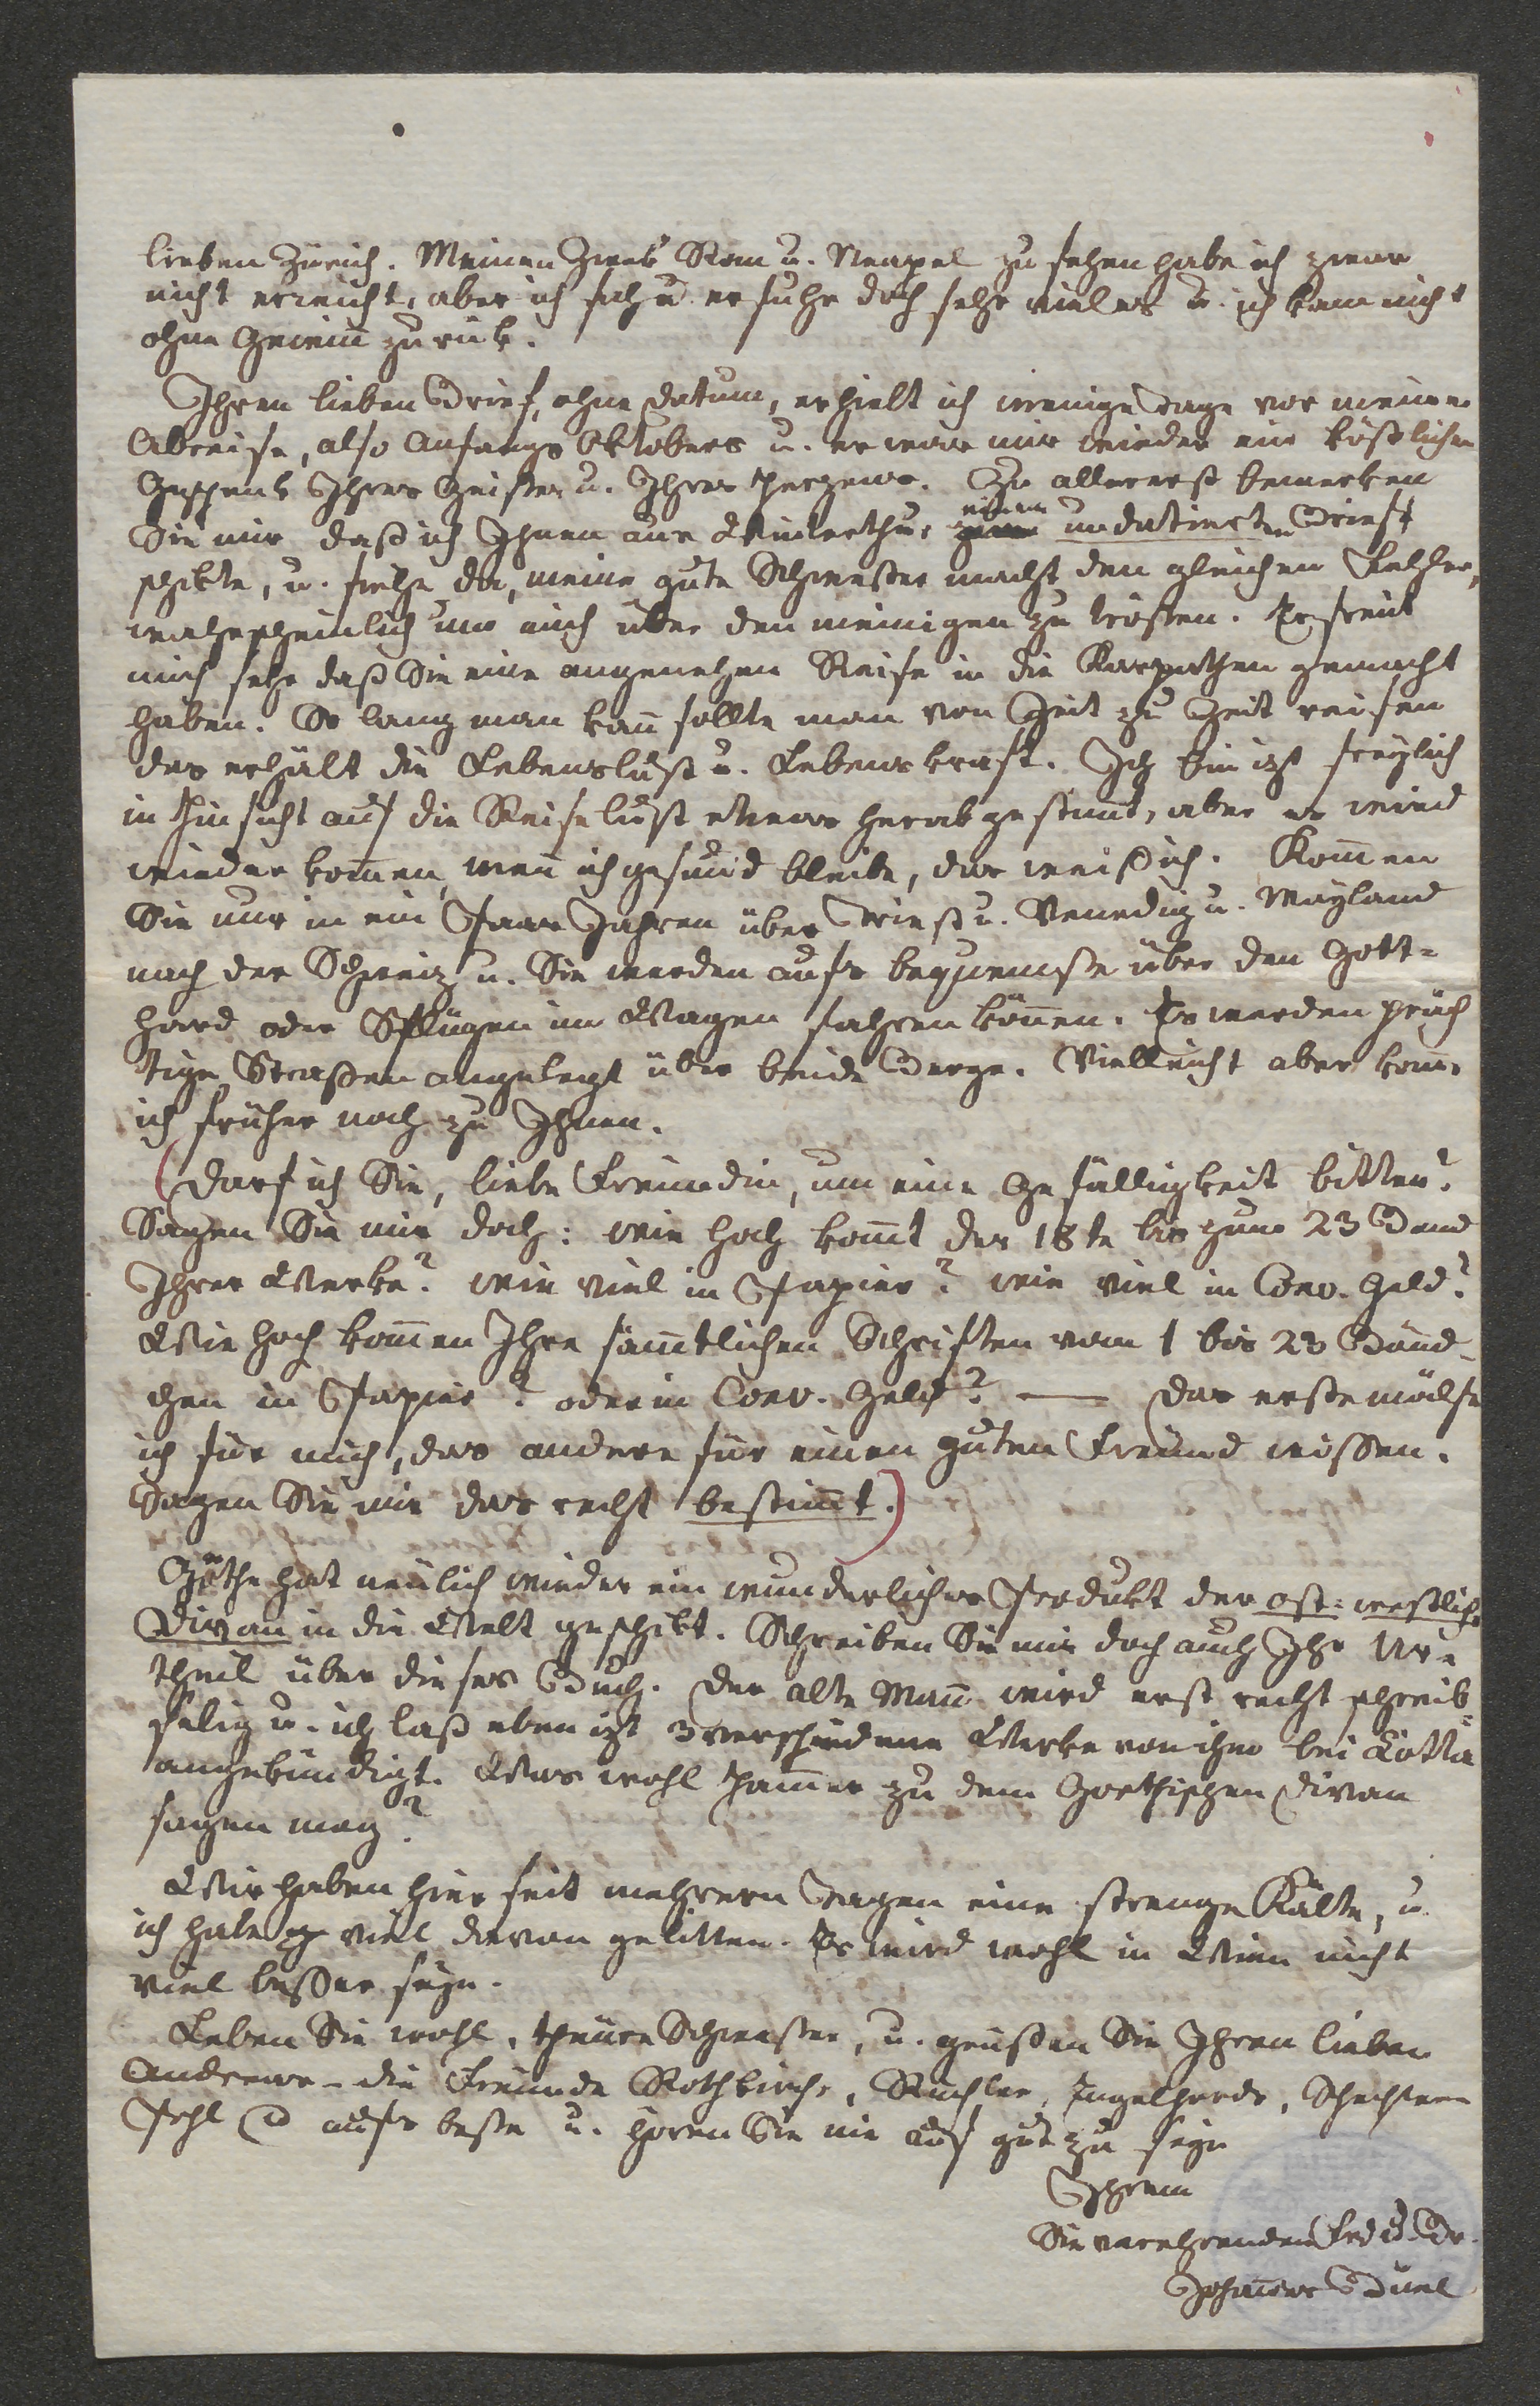 lieben Zürich. Meinen Zwek Rom u. Neapel zu sehen habe ich zwar
nicht erreicht, aber ich sah u. erfuhr doch sehr vieles u. ich kam nicht
ohne Gewinn zurük.
Ihren lieben Brief, ohne Datum, erhielt ich wenige Tage vor meiner
Abreise, also Anfangs Oktobers u. er war mir wieder ein köstliches
Geschenk Ihres Geistes u. Ihres Herzens. Zu allererst bemerken
Sie mir, daß ich Ihnen aus Winterthur einen undatirten Brief
schikte, u. siehe da, meine gute Schwester macht den gleichen Fehler,
wahrscheinlich um mich über den meinigen zu trösten. Es freut
mich sehr daß Sie eine angenehme Reise in die Karpathen gemacht
haben. So lang man kann sollte man von Zeit zu Zeit reisen
das erhält die Lebenslust u. Lebenskraft. Ich bin izt freylich
in Hinsicht auf die Reiselust etwas herabgestimmt, aber es wird
wieder kommen, wenn ich gesund bleibe, das weiß ich. Kommen
Sie nur in ein Paar Jahren über Triest u. Venedig u. Mayland
nach der Schweiz u. Sie werden aufs bequemste über den Gott-
hard oder Splügen im Wagen fahren können. Es werden präch
tige Straßen angelegt über beide Berge. Vielleicht aber komme
ich früher noch zu Ihnen.
(Darf ich Sie, liebe Freundin, um eine Gefälligkeit bitten?
Sagen Sie mir doch: wie hoch kommt der 18te bis zum 23 Band
Ihrer Werke? wie viel in Papier? wie viel in Conv. Geld?
Wie hoch kommen Ihre sämmtlichen Schriften vom 1 bis 23 Bänd-
chen in Papier? oder in Conv. Geld? — Das erste möchte
ich für mich, das andere für einen guten Freund wissen.
Sagen Sie mir das recht bestimmt.)
Göthe hat neulich wieder ein wunderliches Produkt den ost-westlichen
Divan in die Welt geschikt. Schreiben Sie mir doch auch Ihr Ur-
theil über dieses Buch. Der alte Mann wird erst recht schreib-
selig u. ich laß eben izt 3 verschiedene Werke von ihm bei Cotta
angekündigt. Was wohl Hammer zu dem Goethischen Divan
sagen mag?
Wir haben hier seit mehrern Tagen eine strenge Kälte, u.
ich habe viel davon gelitten. Es wird wohl in Wien nicht
viel besser seyn.
Leben Sie wohl, theure Schwester, u. grüßen Sie Ihren lieben
Andreas - die Freunde Rothkirch, Büchler, Ingelhards, Schechtern
Pohl aufs beste u. hören Sie nie auf gut zu seyn
Ihrem
Sie verehrenden Frd u. Br.
Johannes Büel